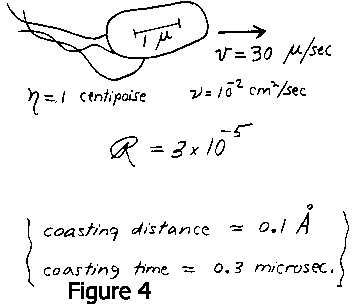 1 μ
v = 30 μ/sec
η = 1 centipoise ν = 10⁻² cm²/sec
R = 3 x 10⁻⁵
coasting distance = 0.1 Å
coasting time = 0.3 microsec.
Figure 4